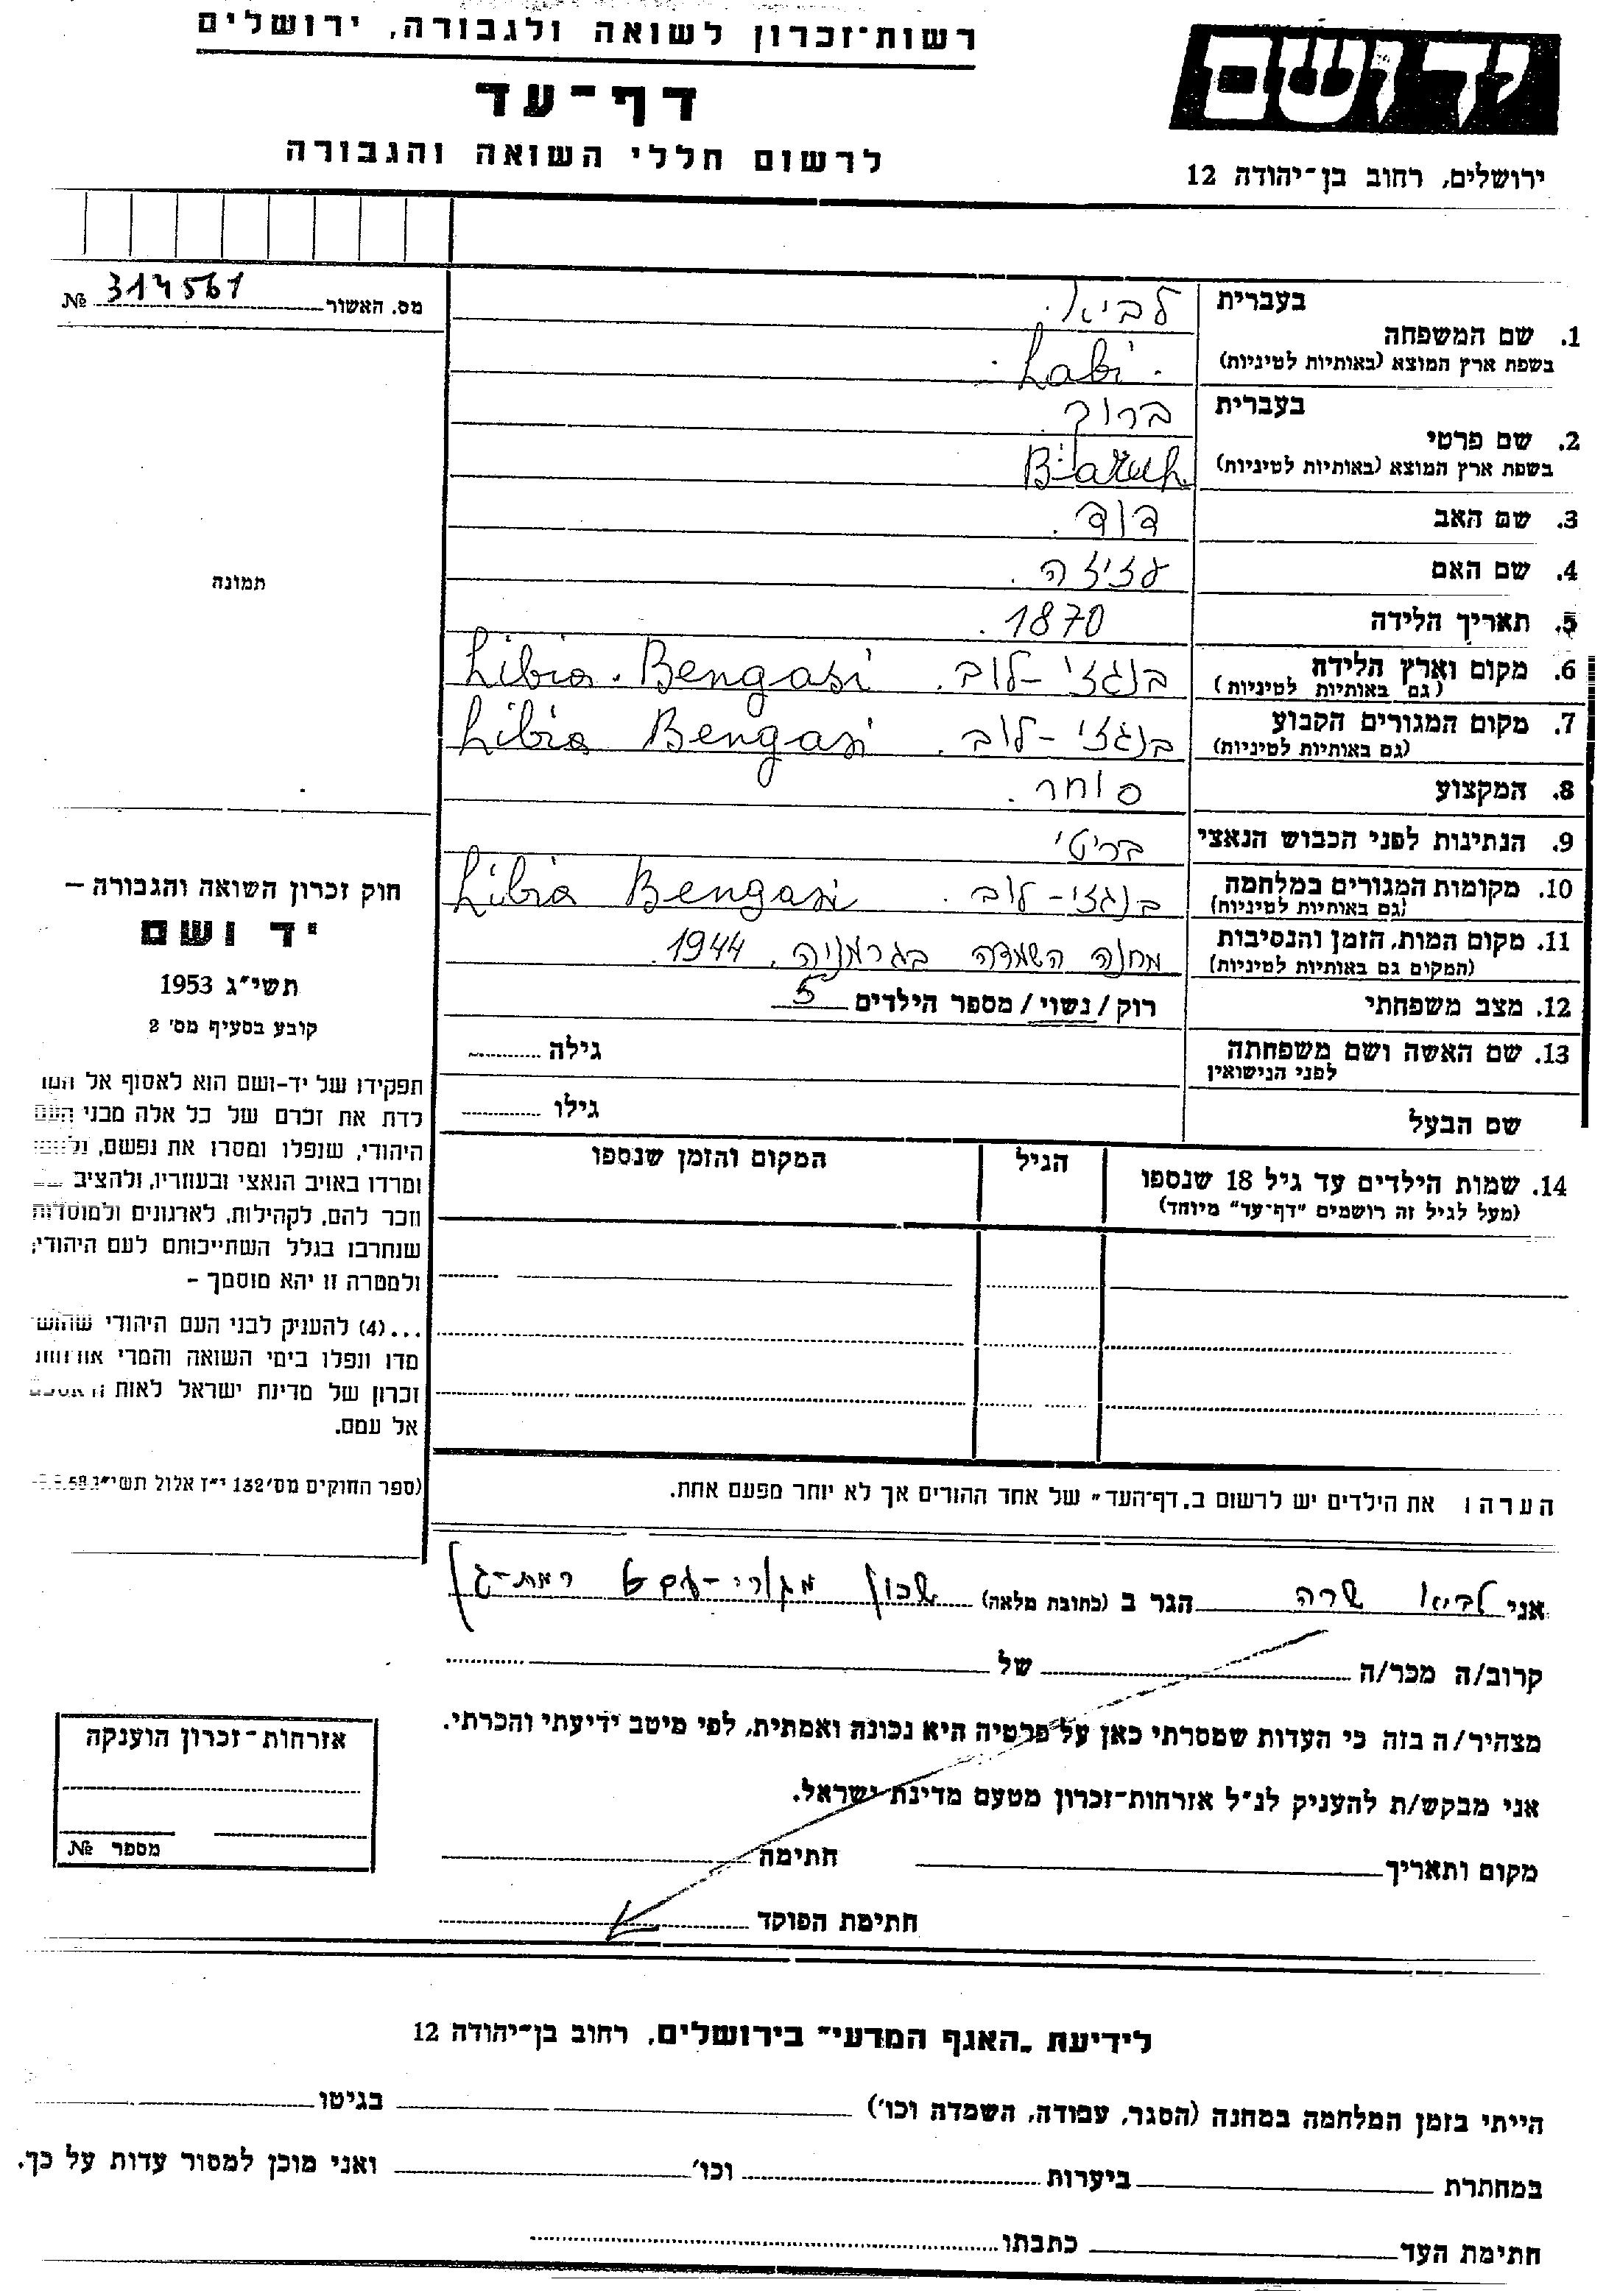 רשות־זכרון לשואה ולגבורה, ירושלים
דף־עד
לרשום חללי השואה והגבורה
יד ושם
ירושלים, רחוב בן־יהודה 12
מס. האשור 314561 №
1. שם המשפחה
בעברית לביא.
בשפת ארץ המוצא (באותיות לטיניות) Labi
2. שם פרטי
בעברית ברוך
בשפת ארץ המוצא (באותיות לטיניות) Baruh
3. שם האב דוד.
4. שם האם עזיזה.
תמונה
5. תאריך הלידה 1870.
6. מקום וארץ הלידה בנגזי-לוב. Libia. Bengasi
(גם באותיות לטיניות)
7. מקום המגורים הקבוע בנגזי-לוב. Libia Bengasi
(גם באותיות לטיניות)
8. המקצוע סוחר.
9. הנתינות לפני הכבוש הנאצי בריטי
10. מקומות המגורים במלחמה בנגזי-לוב. Libia Bengasi
(גם באותיות לטיניות)
11. מקום המות, הזמן והנסיבות מחנה השמדה בגרמניה. 1944.
(המקום גם באותיות לטיניות)
12. מצב משפחתי רוק/נשוי/מספר הילדים 5
13. שם האשה ושם משפחתה גילה
לפני הנישואין
שם הבעל גילו
14. שמות הילדים עד גיל 18 שנספו הגיל המקום והזמן שנספו
(מעל לגיל זה רושמים "דף־עד" מיוחד)
חוק זכרון השואה והגבורה –
יד ושם
תשי״ג 1953
קובע בסעיף מס׳ 2
תפקידו של יד-ושם הוא לאסוף אל
לדת את זכרם של כל אלה מבני העם
היהודי, שנפלו ומסרו את נפשם,
ומרדו באויב הנאצי ובעוזריו, ולהציב
וזכר להם, לקהילות, לארגונים ולמוסדות
שנחרבו בגלל השתייכותם לעם היהודי;
ולמטרה זו יהא מוסמך –
...(4) להעניק לבני העם היהודי שהוש
מדו ונפלו בימי השואה והמרי אזרחות
זכרון של מדינת ישראל לאות
אל עמם.
(ספר החוקים מס׳ 132 י״ז אלול תשי״ג
הערה: את הילדים יש לרשום ב„דף־העד" של אחד ההורים אך לא יותר מפעם אחת.
אני לביא שרה הגר ב (כתובת מלאה) שכון רמת-גן
קרוב/ה מכר/ה של
מצהיר/ה בזה כי העדות שמסרתי כאן על פרטיה היא נכונה ואמתית, לפי מיטב ידיעתי והכרתי.
אני מבקש/ת להעניק לנ״ל אזרחות-זכרון מטעם מדינת ישראל.
מקום ותאריך חתימה
חתימת הפוקד
אזרחות־זכרון הוענקה
מספר №
לידיעת „האגף המדעי" בירושלים, רחוב בן־יהודה 12
הייתי בזמן המלחמה במחנה (הסגר, עבודה, השמדה וכו׳) בגיטו
במחתרת ביערות וכו׳ ואני מוכן למסור עדות על כך.
חתימת העד כתבתו